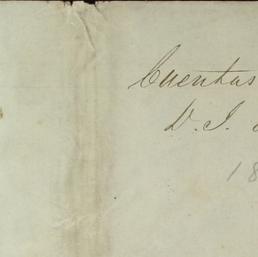 Cuentas
D. J.
18